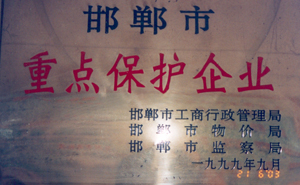 邯郸市
重点保护企业
邯郸市工商行政管理局
邯郸市物价局
邯郸市监察局
一九九九年九月
21 6:03